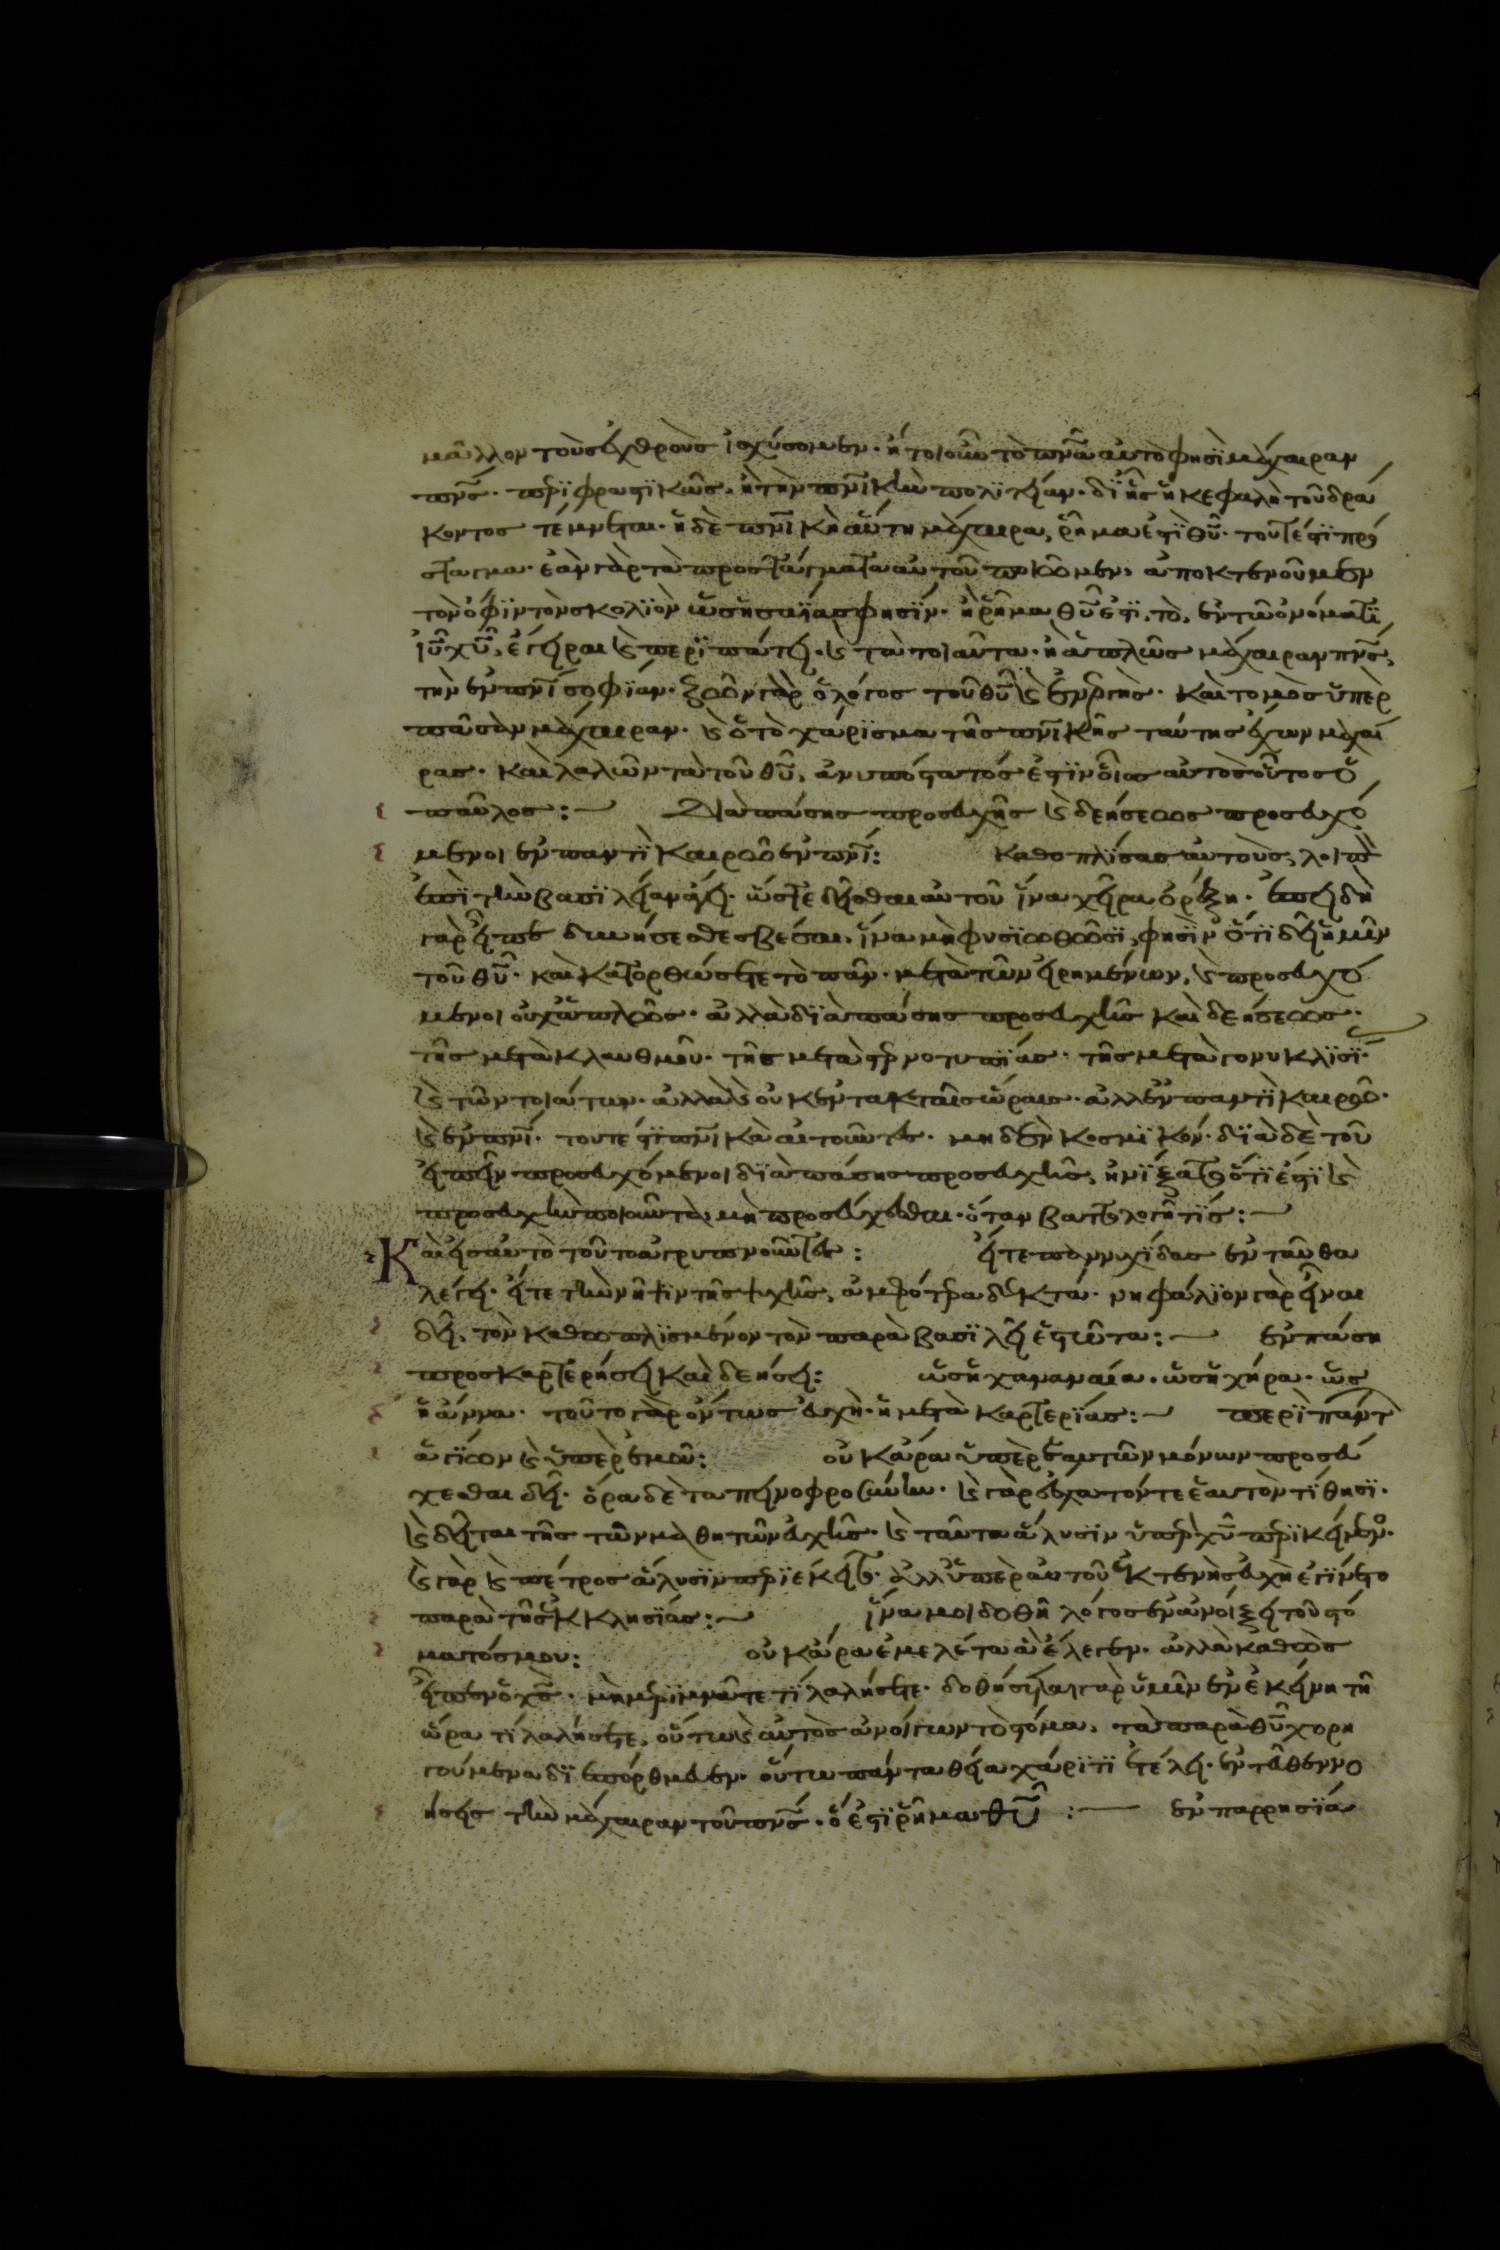 μᾶλλον τοὺς ἐχθροὺς ἰσχύσομεν· ἤτοι οὖν τὸ πν̅α αὐτὸ φησὶ μάχαιραν
πν̅ς· περιφραστικῶς, ἢ τὴν πν̅ικὴν πολιτείαν· δι' ἧς ἡ κεφαλὴ τοῦ δρά
κοντος τέμνεται· ἡ δὲ πν̅ικὴ αὕτη μάχαιρα, ῥῆμα ἐστὶ θυ̅· τουτέστι πρό
σταγμα· ἐὰν γὰρ τὰ προστάγματα αὐτοῦ ποιῶμεν, ἀποκτενοῦμεν
τὸν ὄφιν τὸν σκολιὸν ὡς ἡσαΐας φησίν· ἢ ῥῆμα θυ̅ ἐστι, τὸ, ἐν τῶ ὀνόματι
ιυ̅ χυ̅, ἔγειραι καὶ περιπάτει· καὶ τὰ τοιαῦτα· ἢ ἁπλῶς μάχαιραν πν̅ς,
τὴν ἐν πν̅ι σοφίαν· ζῶν γὰρ ὁ λόγος τοῦ θυ̅ καὶ ἐνεργὴς· καὶ τομὸς ὑπὲρ
πᾶσαν μάχαιραν· καὶ ὁ τὸ χάρισμα τῆς πν̅ικῆς ταύτης ἔχων μαχαί
ρας· καὶ λαλῶν τὰ τοῦ θυ̅, ἀνυπόστατός ἐστιν οἷος αὐτὸς οὗτος ὁ
παῦλος: Διὰ πάσης προσευχῆς καὶ δεήσεως προσευχό
μενοι ἐν παντὶ καιρῶ ἐν πν̅ι: καθοπλίσας αὐτοὺς, λοιπὸν
ἐπὶ τὴν βασιλείαν ἄγει· ὥστε δεῖσθαι αὐτοῦ ἵνα χεῖρα ὀρέξη· ἐπειδὴ
γὰρ εἶπε δυνήσεσθε σβέσαι, ἵνα μὴ φυσιωθῶσι, φησὶν ὅτι δεῖ ἡμῖν
τοῦ θυ̅· καὶ κατορθώσετε τὸ πᾶν· μετὰ τῶν εἰρημένων, καὶ προσευχό
μενοι οὐχ ἁπλῶς· ἀλλὰ διὰ πάσης προσευχῆς καὶ δεήσεως·
τῆς μετὰ κλαυθμοῦ· τῆς μετὰ στερνοτυπίας· τῆς μετὰ γονυκλισί·
καὶ τῶν τοιούτων· ἀλλὰ καὶ οὐκ ἐν τακταῖς ὥραις· ἀλλ' ἐν παντὶ καιρῶ·
καὶ ἐν πν̅ι· τουτέστι πν̅ικὰ αἰτοῦντες· μηδὲν κοσμικόν· διὰ δὲ τοῦ
εἰπεῖν προσευχόμενοι διὰ πάσης προσευχῆς, ἠνίξατο ὅτι ἐστὶ καὶ
προσευχὴν ποιοῦντα, μὴ προσεύχεσθαι· ὅταν βαττολογῆ τίς:
Καὶ εἰς αὐτὸ τοῦτο ἀγρυπνοῦντες: εἴτε παννυχίδας ἐνταῦθα
λέγει· εἴτε τὴν νῆψιν τῆς ψυχῆς, ἀμφότερα δεκτά· νηφάλιον γὰρ εἶναι
δεῖ, τὸν καθωπλισμένον τὸν παρὰ βασιλεῖ ἑστῶτα: ἐν πάση
προσκαρτερήσει καὶ δεήσει: ὡς ἡ χαναναία· ὡς ἡ χήρα· ὡς
ἡ ἄννα· τοῦτο γὰρ ὄντως εὐχὴ· ἡ μετὰ καρτερίας: περὶ πάντων
ἁγίων καὶ ὑπὲρ ἐμοῦ: οὐκ ἄρα ὑπὲρ ἑαυτῶν μόνων προσεύ
χεσθαι δεῖ· ὅρα δὲ ταπεινοφροσύνην· καὶ γὰρ ἔσχατόν τε ἑαυτὸν τίθησι·
καὶ δεῖται τῆς τῶν μαθητῶν εὐχῆς· καὶ ταῦτα ἅλυσιν ὑπὲρ χυ̅ περικείμενος·
καὶ γὰρ καὶ πέτρος ἅλυσιν περιέκειτο· ἀλλ' ὑπὲρ αὐτοῦ ἐκτενὴς εὐχὴ ἐγίνετο
παρὰ τῆς ἐκκλησίας: ἵνα μοι δοθῆ λόγος ἐν ἀνοίξει τοῦ στό
ματός μου: οὐκ ἄρα ἐμελέτα ἃ ἔλεγεν· ἀλλὰ καθὼς
εἶπεν ὁ χς̅· μὴ μεριμνᾶτε τί λαλήσετε· δοθήσεται γὰρ ὑμῖν ἐν ἐκείνη τῆ
ὥρα τί λαλήσετε, οὕτω καὶ αὐτὸς ἀνοίγων τὸ στόμα, τὰ παρὰ θυ̅ χορη
γούμενα διεπόρθμευεν· οὕτω πάντα θεία χάριτι ἐτέλει· ἐντεῦθεν νο
ήσεις τὴν μάχαιραν τοῦ πν̅ς· ὅ ἐστι ῥῆμα θυ̅: ἐν παρρησία